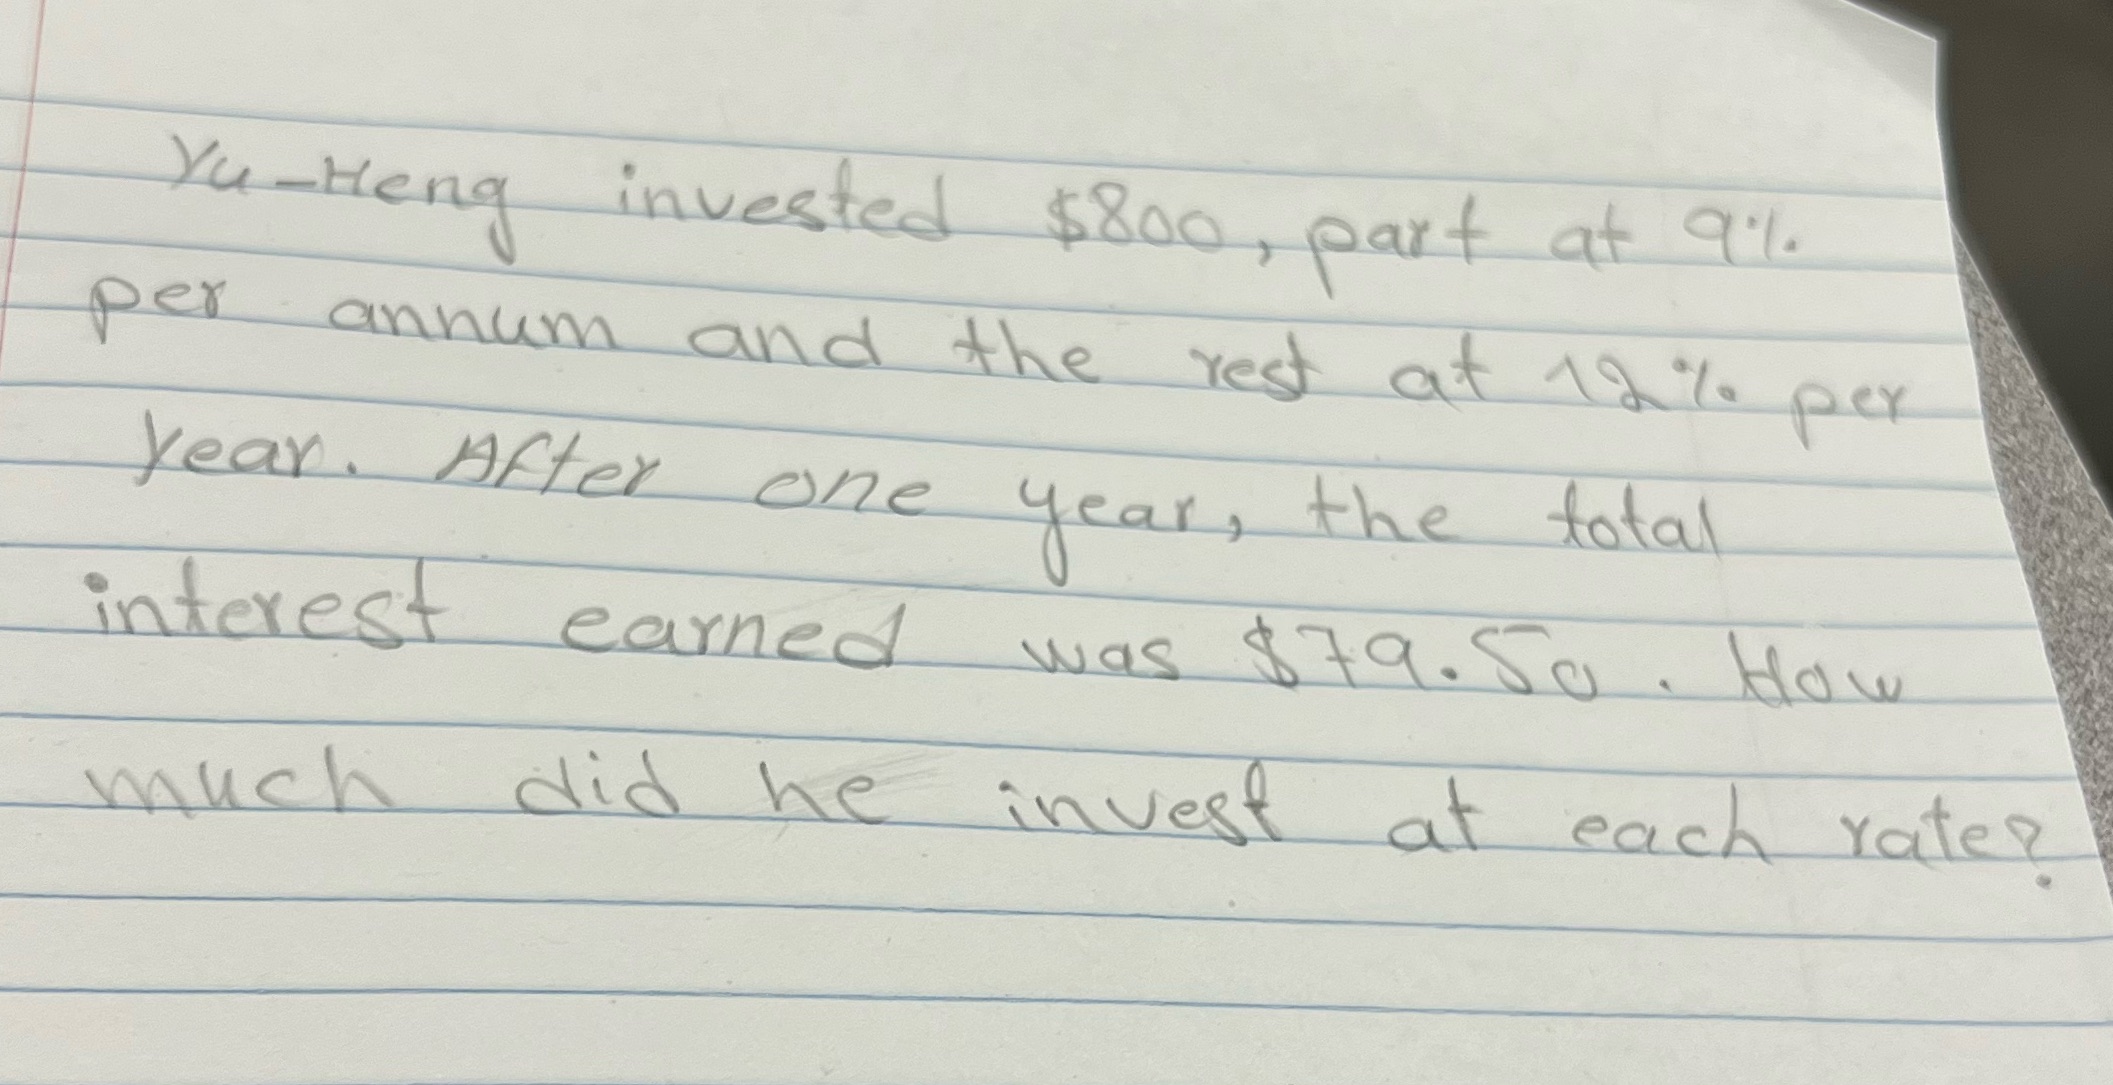 Yu-Heng invested $800, part at 9%
per annum and the rest at 12% per
year. After one year, the total
interest earned was $79.50. How
much did he invest at each rate?